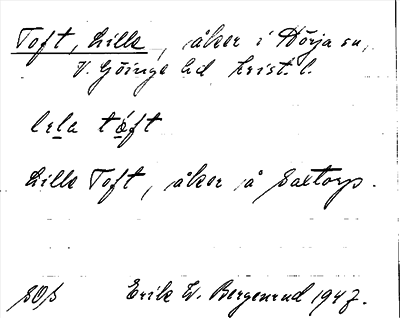 Toft, Lilla, åker i Hörja sn,
V. Göinge hd Krist. l.
lela tóft
Lilla Toft, åker å Saxtorp.
SOS Erik W. Bergenrud 1947.